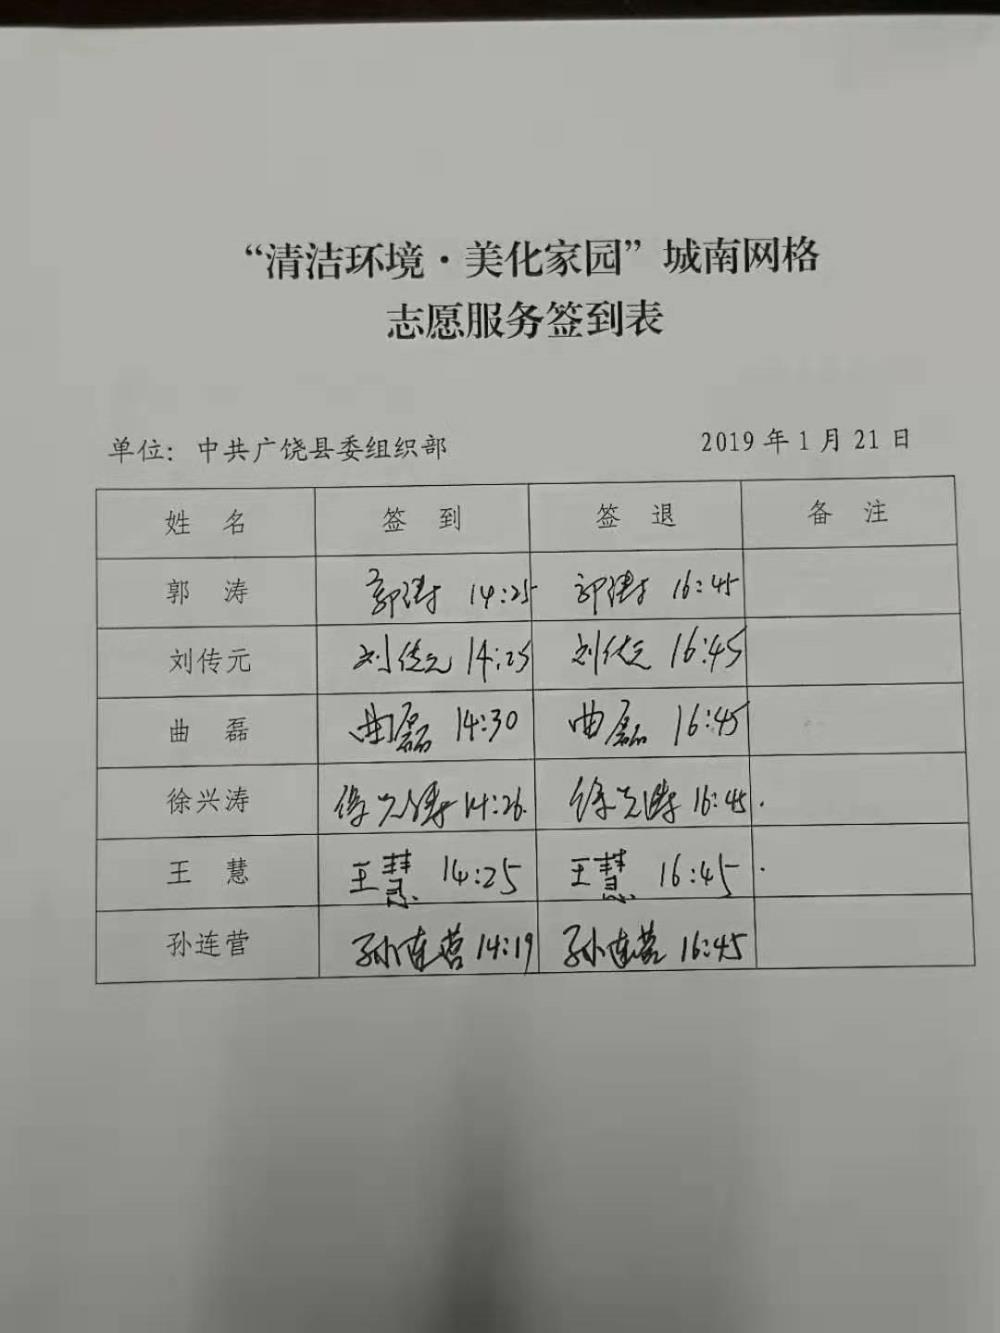 “清洁环境·美化家园”城南网格
志愿服务签到表
单位：中共广饶县委组织部 2019年1月21日
姓 名 签 到 签 退 备 注
郭 涛 郭涛 14:25 郭涛 16:45
刘传元 刘传元 14:25 刘传元 16:45
曲 磊 曲磊 14:30 曲磊 16:45
徐兴涛 徐兴涛 14:26 徐兴涛 16:45
王 慧 王慧 14:25 王慧 16:45
孙连营 孙连营 14:19 孙连营 16:45